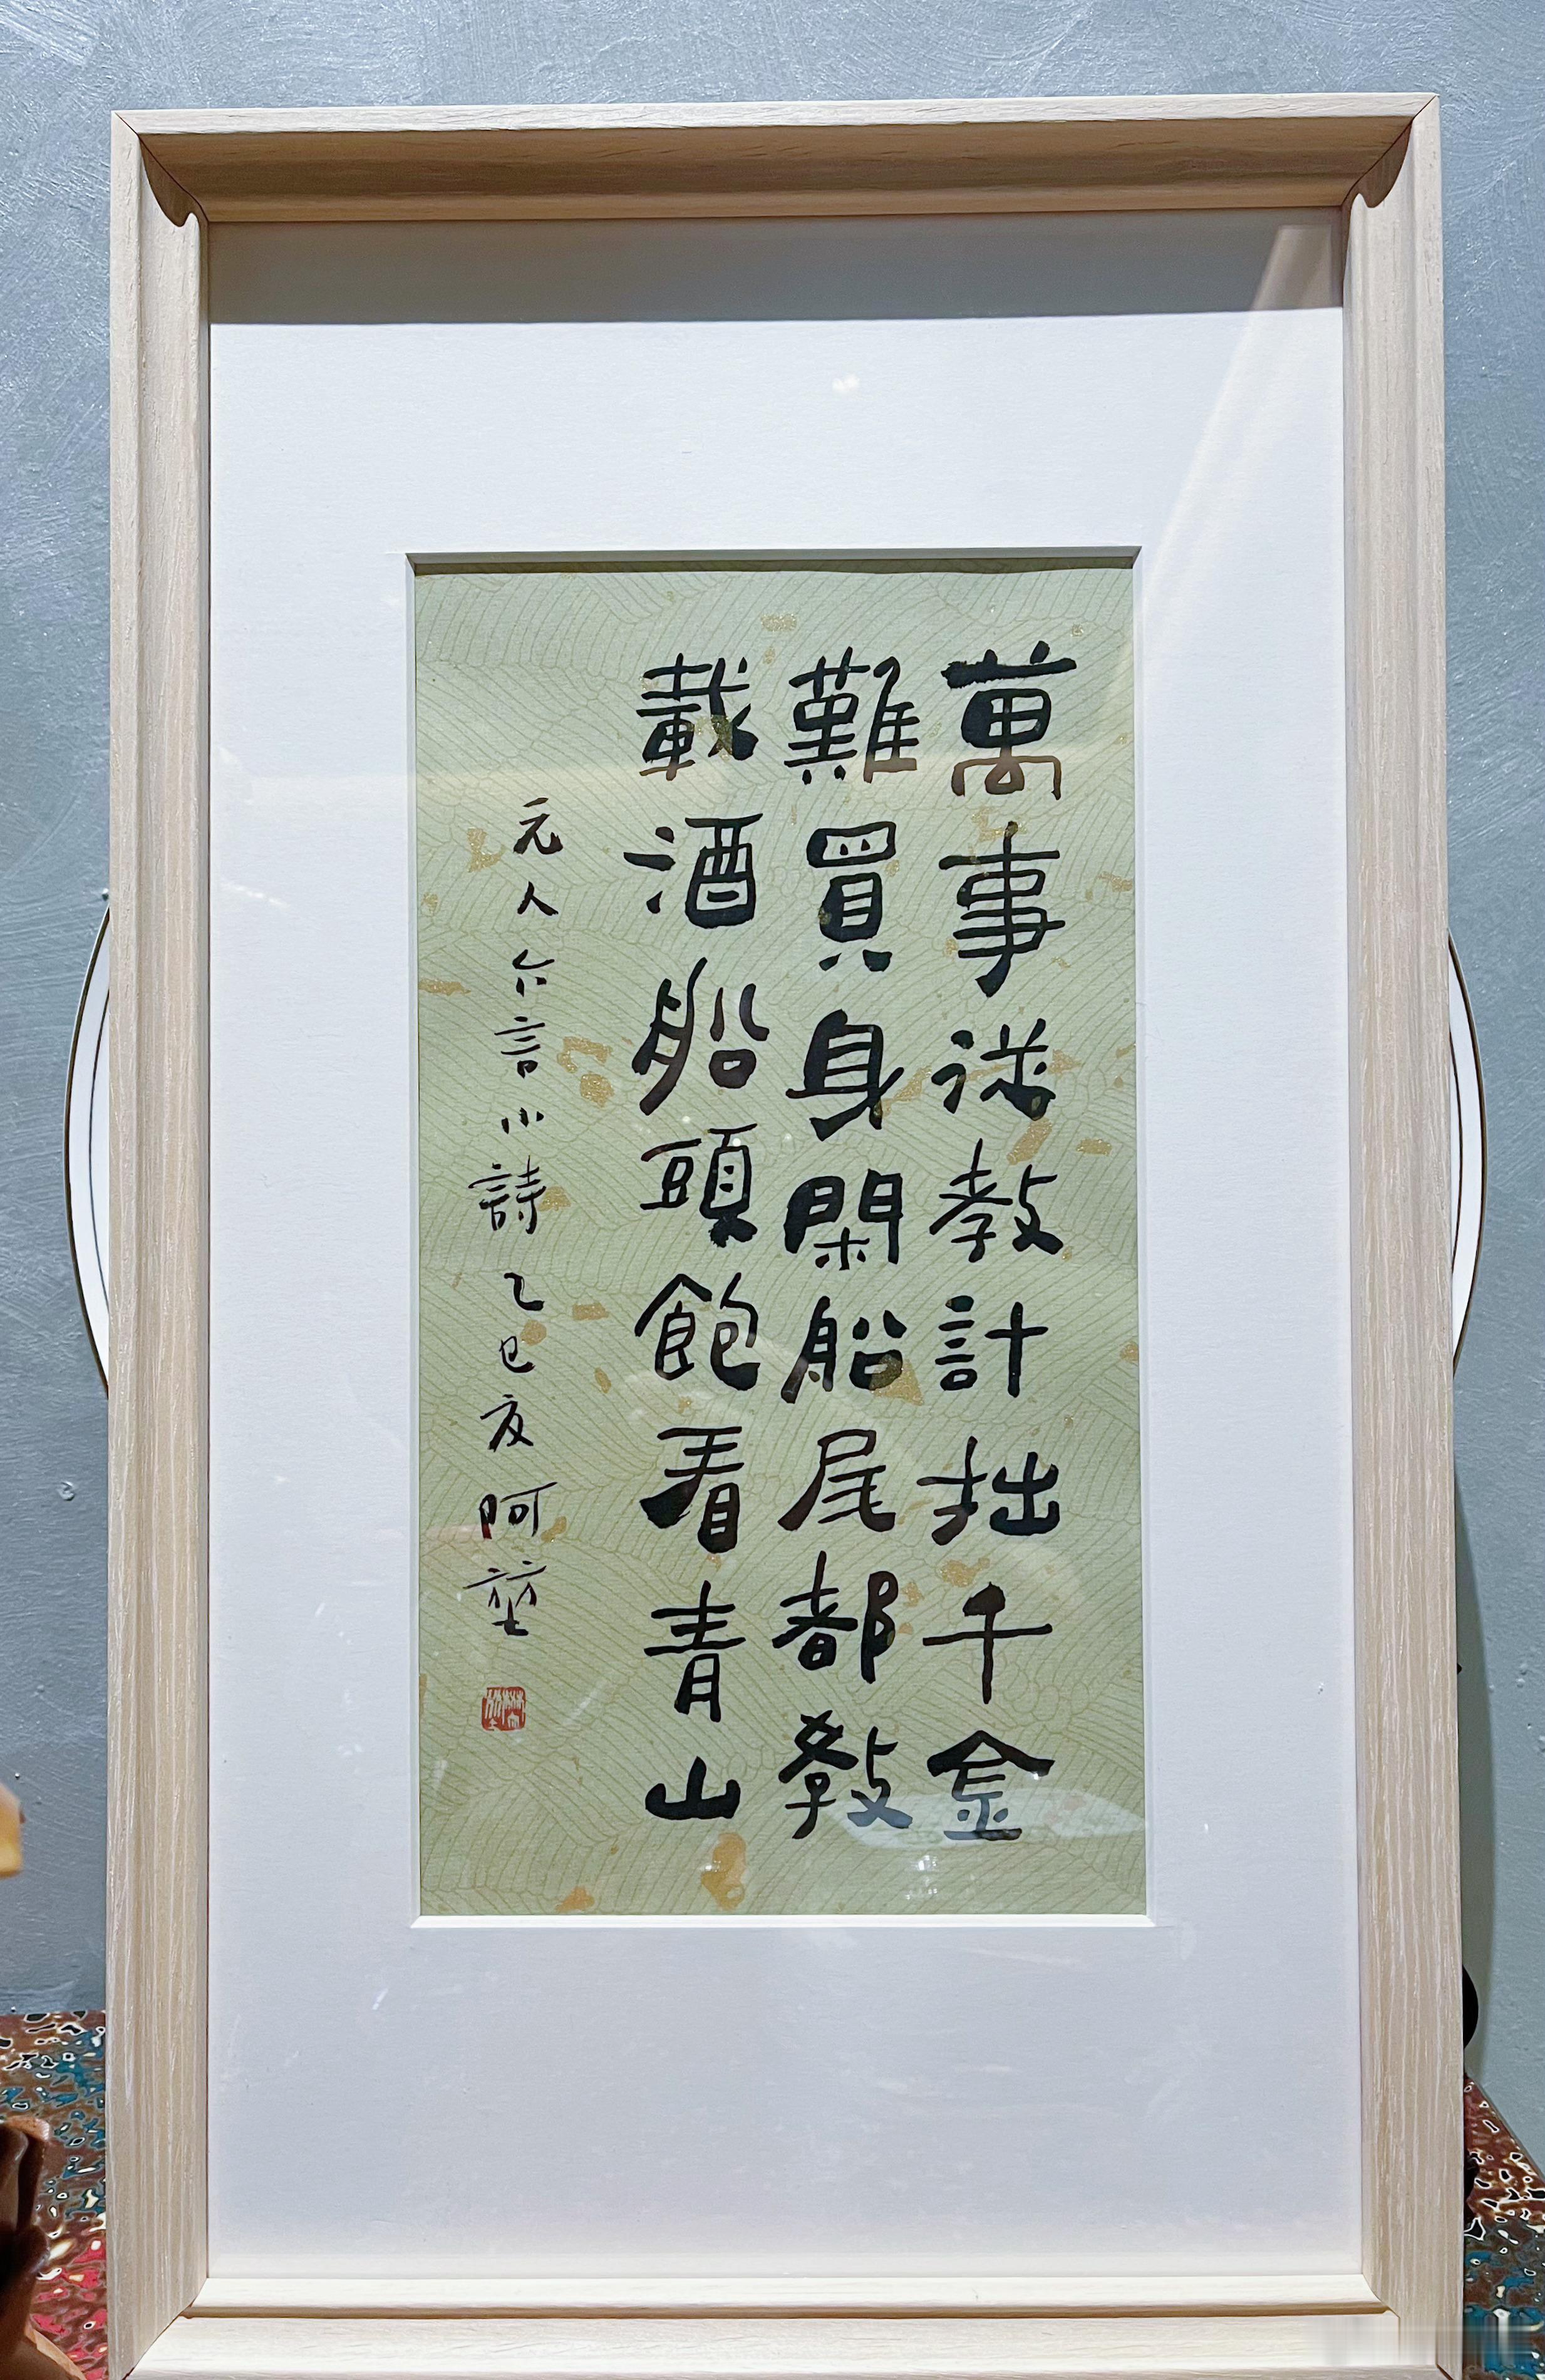 萬事從教計拙千金
難買身閑船尾都教
載酒船頭飽看青山
元人六言小詩乙巳夏阿堃